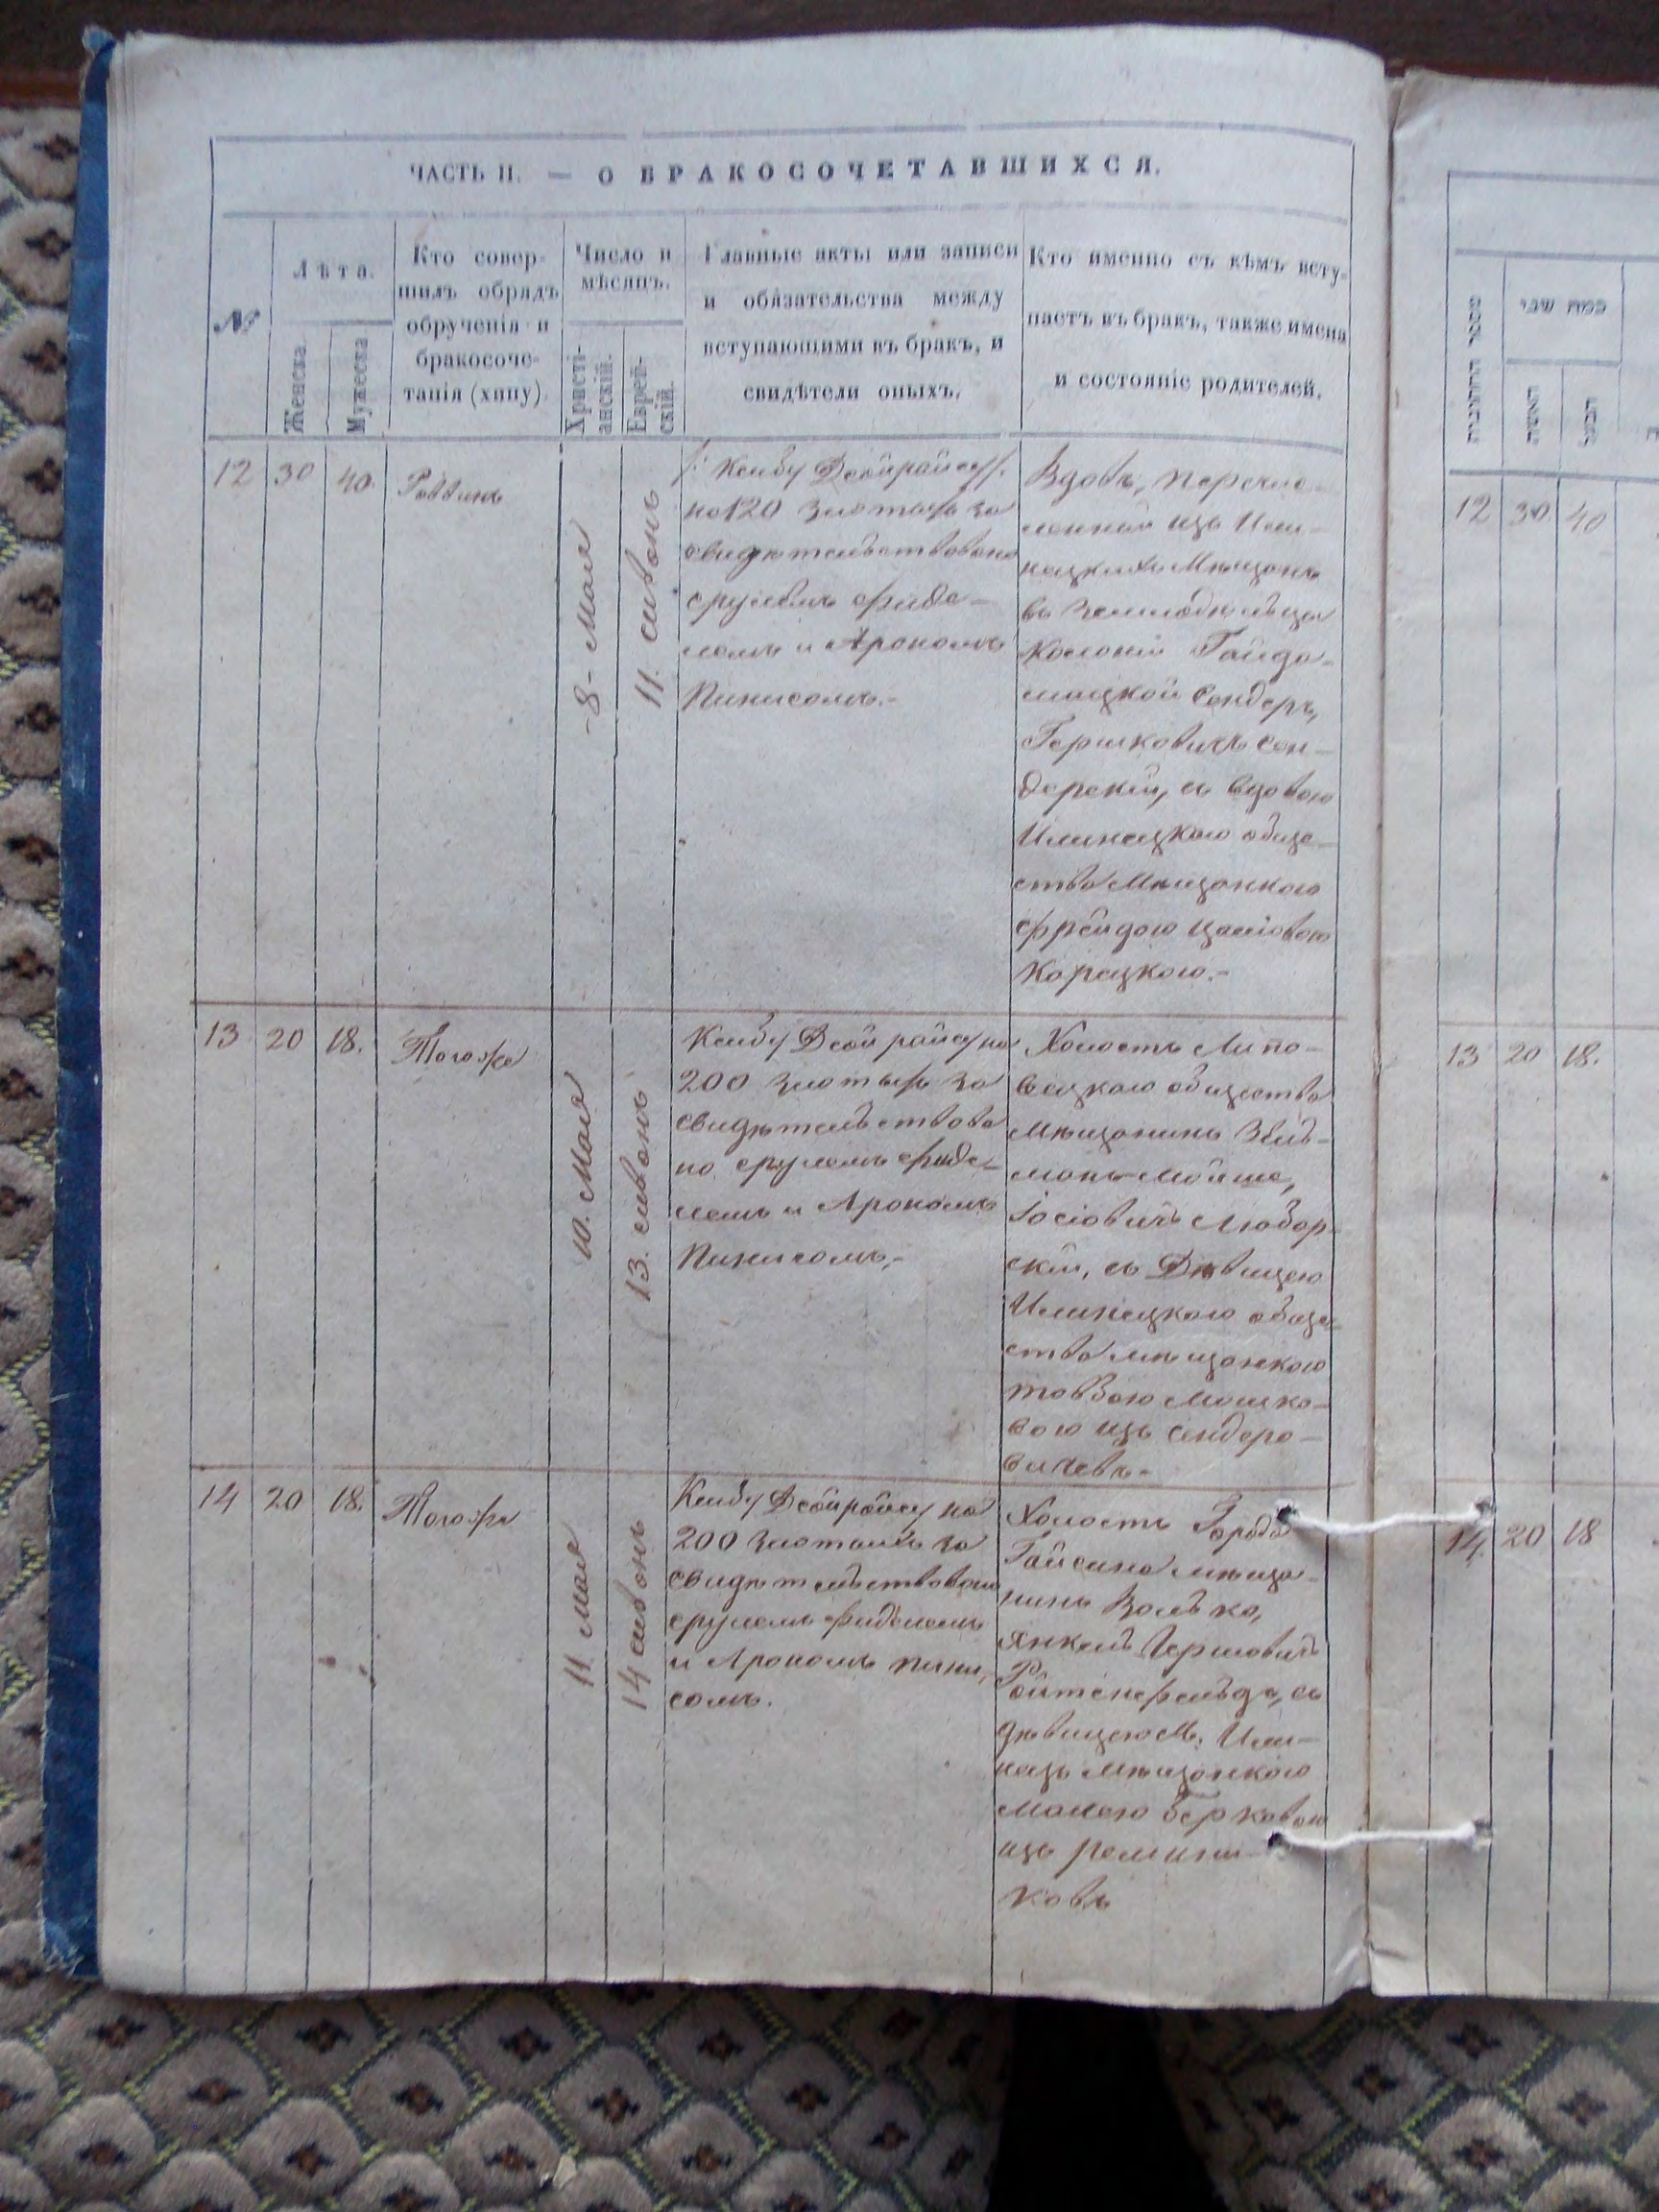 ЧАСТЬ II. — О БРАКОСОЧЕТАВШИХСЯ.
№
Лѣта.
Женска.
Мужеска
Кто совер-
шилъ обрядъ
обрученія и
бракосоче-
танія (хипу)
Число и
мѣсяцъ.
Христі-
анскій.
Еврей-
скій.
Главные акты или записи
и обязательства между
вступающими въ бракъ, и
свидѣтели оныхъ.
Кто именно съ кѣмъ всту-
паетъ въ бракъ, также имена
и состояніе родителей.
12
30
40.
Раввинъ
8 - Мая
11. сивонъ
на 120 злотыхъ за
свидѣтельствовано
срулемъ фиде-
лемъ и Арономъ
Пинисомъ.-
Вдовъ, перечис-
ленный изъ Или-
нецкихъ Мѣщанъ
въ земледѣльцы
Колоніи Гайда-
мацкой Сендеръ,
Гершковичъ Сен-
дерскій, съ вдовою
Илинецкого обще-
ства Мѣщанкою
Фрейдою
Корецкою.-
13
20
18.
Тогоже
10. Мая
13. сивонъ
200 злотыхъ за
свидѣтельствова
но срулемъ фиде-
лемъ и Арономъ
Пинисомъ,-
Холостъ Липо-
вецкаго общества
Мѣщанинъ Зель-
манъ-Мойше,
Іосіовичъ Любор-
скій, съ Дѣвицею
Илинецкого обще-
ства мѣщанкою
товбою Мошко-
вою изъ Сендеро-
вичевъ-
14
20
18.
Тогоже
11 мая
14 сивонъ
200 злотыхъ за
свидѣтельствовано
срулемъ фиделемъ
и Арономъ пини-
сомъ.
Холостъ Города
Гайсина мѣща-
нинъ Волько,
Янкель Гершовичъ
Ройтенфельдъ, съ
дѣвицею М. Или-
нецъ мѣщанкою
Малею Берковою
изъ
ковъ
מספר החתונות
כמות שני
האשה
הבעל
12
30
40
13
20
18.
14.
20
18